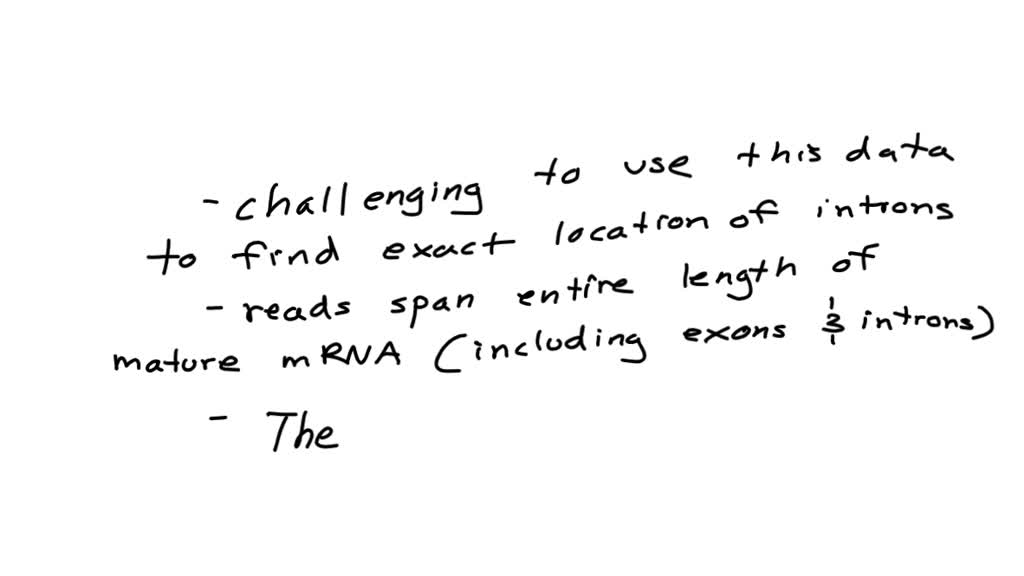 - challenging to use this data
to find exact location of introns
- reads span entire length of
mature mRNA (including exons & introns)
- The